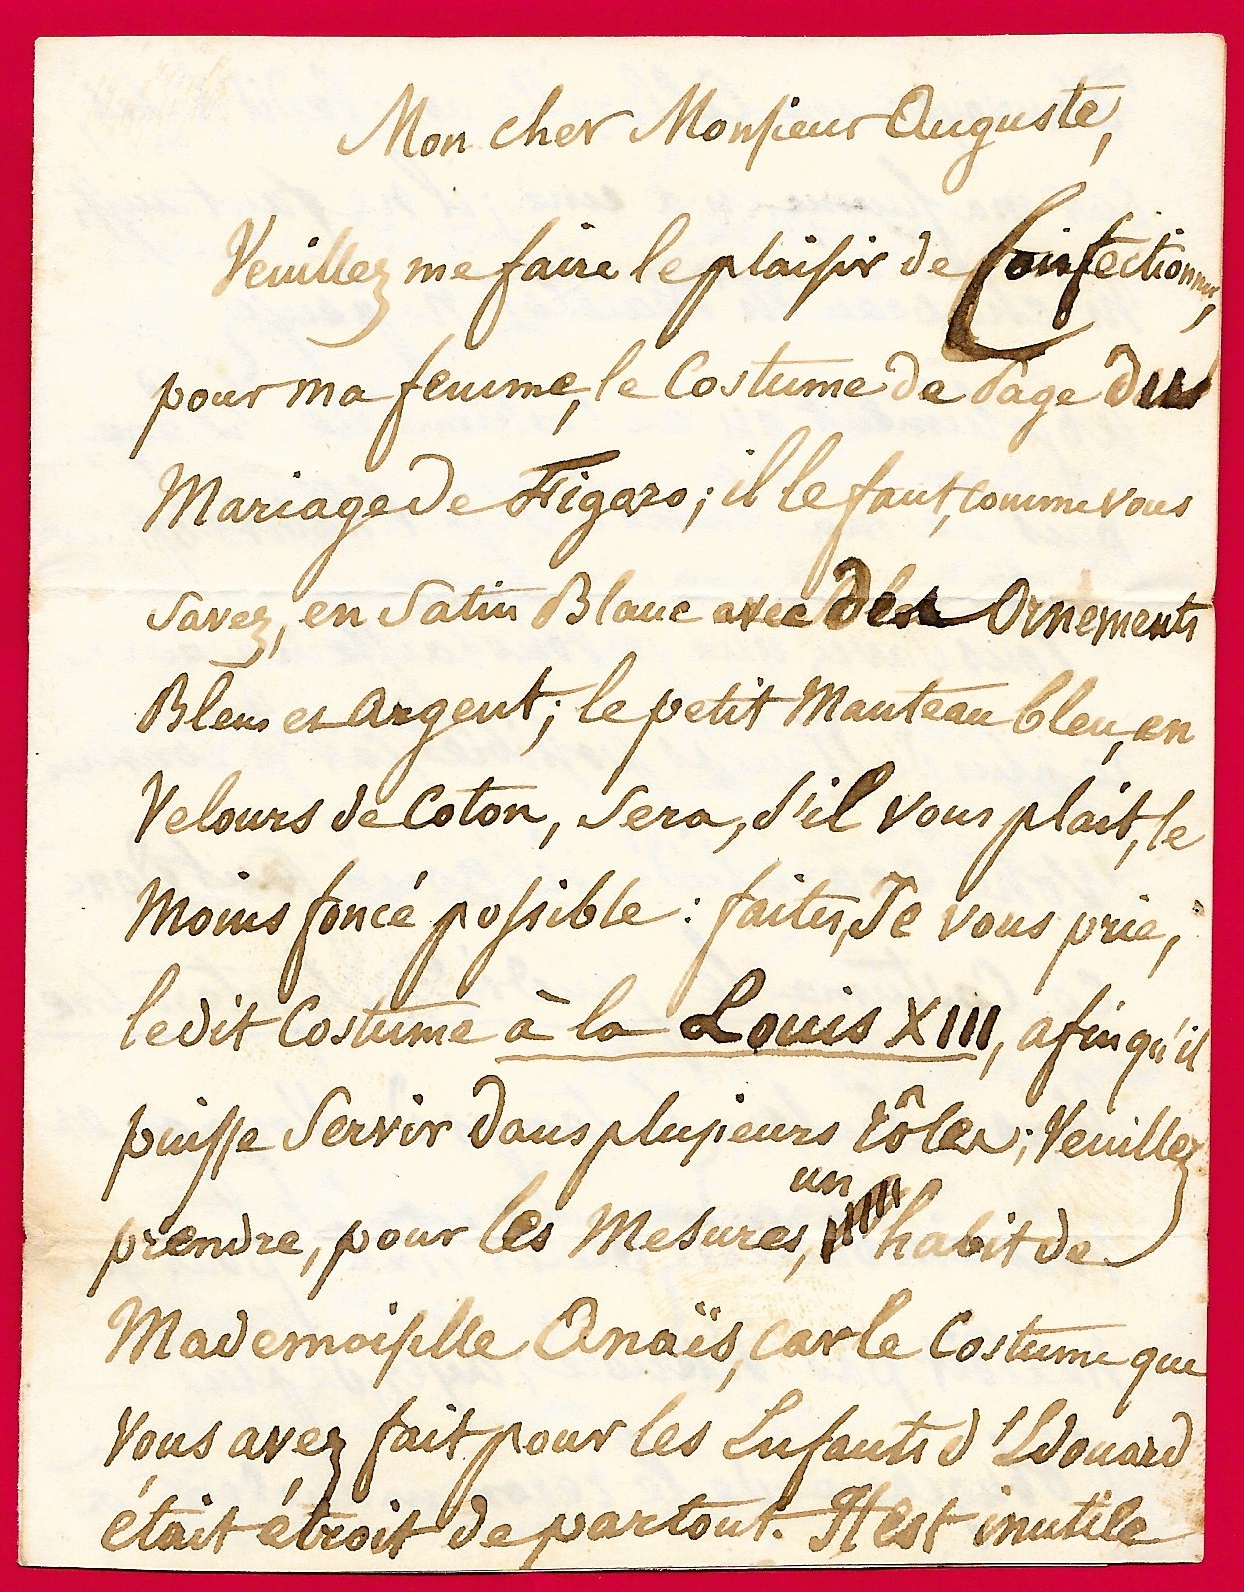 Mon cher Monsieur Auguste,
Veuillez me faire le plaisir de Confectionner,
pour ma femme, le Costume de Page du
Mariage de Figaro; il le faut, comme vous
savez, en satin Blanc avec des Ornements
Bleus et argent; le petit Manteau bleu, en
Velours de Coton, sera, s'il vous plait, le
Moins foncé possible: faites, Je vous prie,
ledit Costume à la Louis XIII, afin qu'il
puisse servir dans plusieurs rôles; Veuillez
prendre, pour les Mesures, un habit de
Mademoiselle Anaïs, car le Costume que
Vous avez fait pour les Enfants d'Edouard
était étroit de partout. Il est inutile